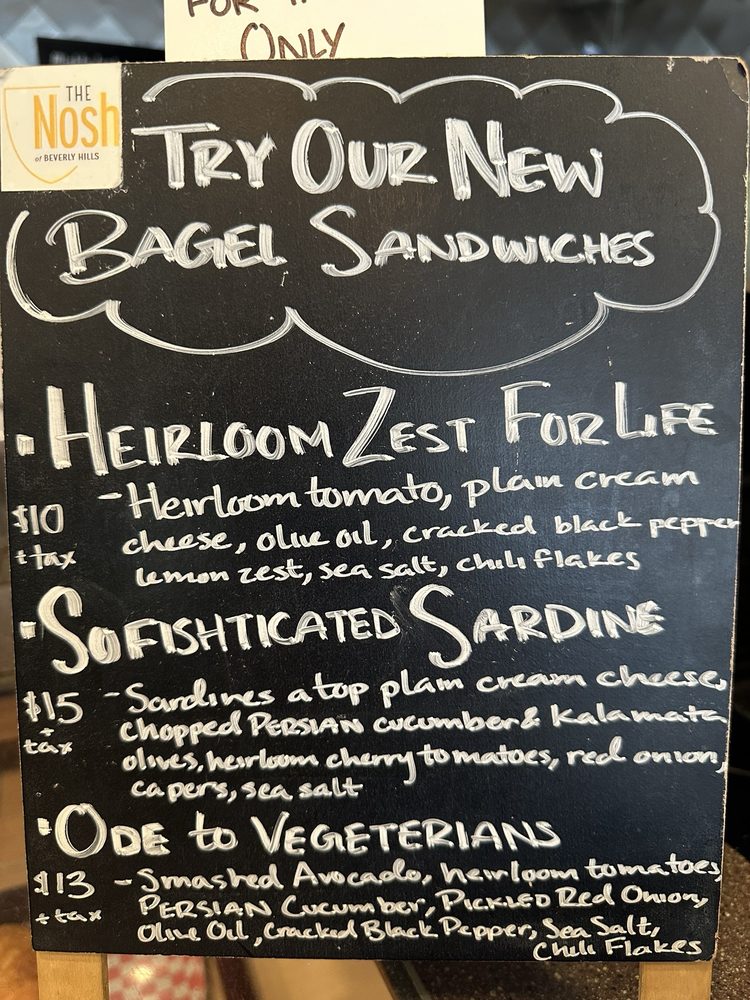 ONLY
THE
Nosh
of BEVERLY HILLS
TRY OUR NEW
BAGEL SANDWICHES
▪ HEIRLOOM ZEST FOR LIFE
$10
+ tax
- Heirloom tomato, plain cream
cheese, olive oil, cracked black pepper
lemon zest, sea salt, chili flakes
▪ SOFISHTICATED SARDINE
$15
+
tax
- Sardines atop plain cream cheese,
chopped PERSIAN cucumber & Kalamata
olives, heirloom cherry tomatoes, red onion,
capers, sea salt
▪ ODE to VEGETERIANS
$13
+ tax
- Smashed Avocado, heirloom tomatoes,
PERSIAN Cucumber, PICKLED Red Onion,
Olive Oil, Cracked Black Pepper, Sea Salt,
Chili Flakes